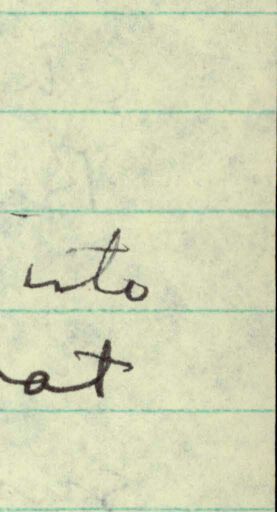 into
at